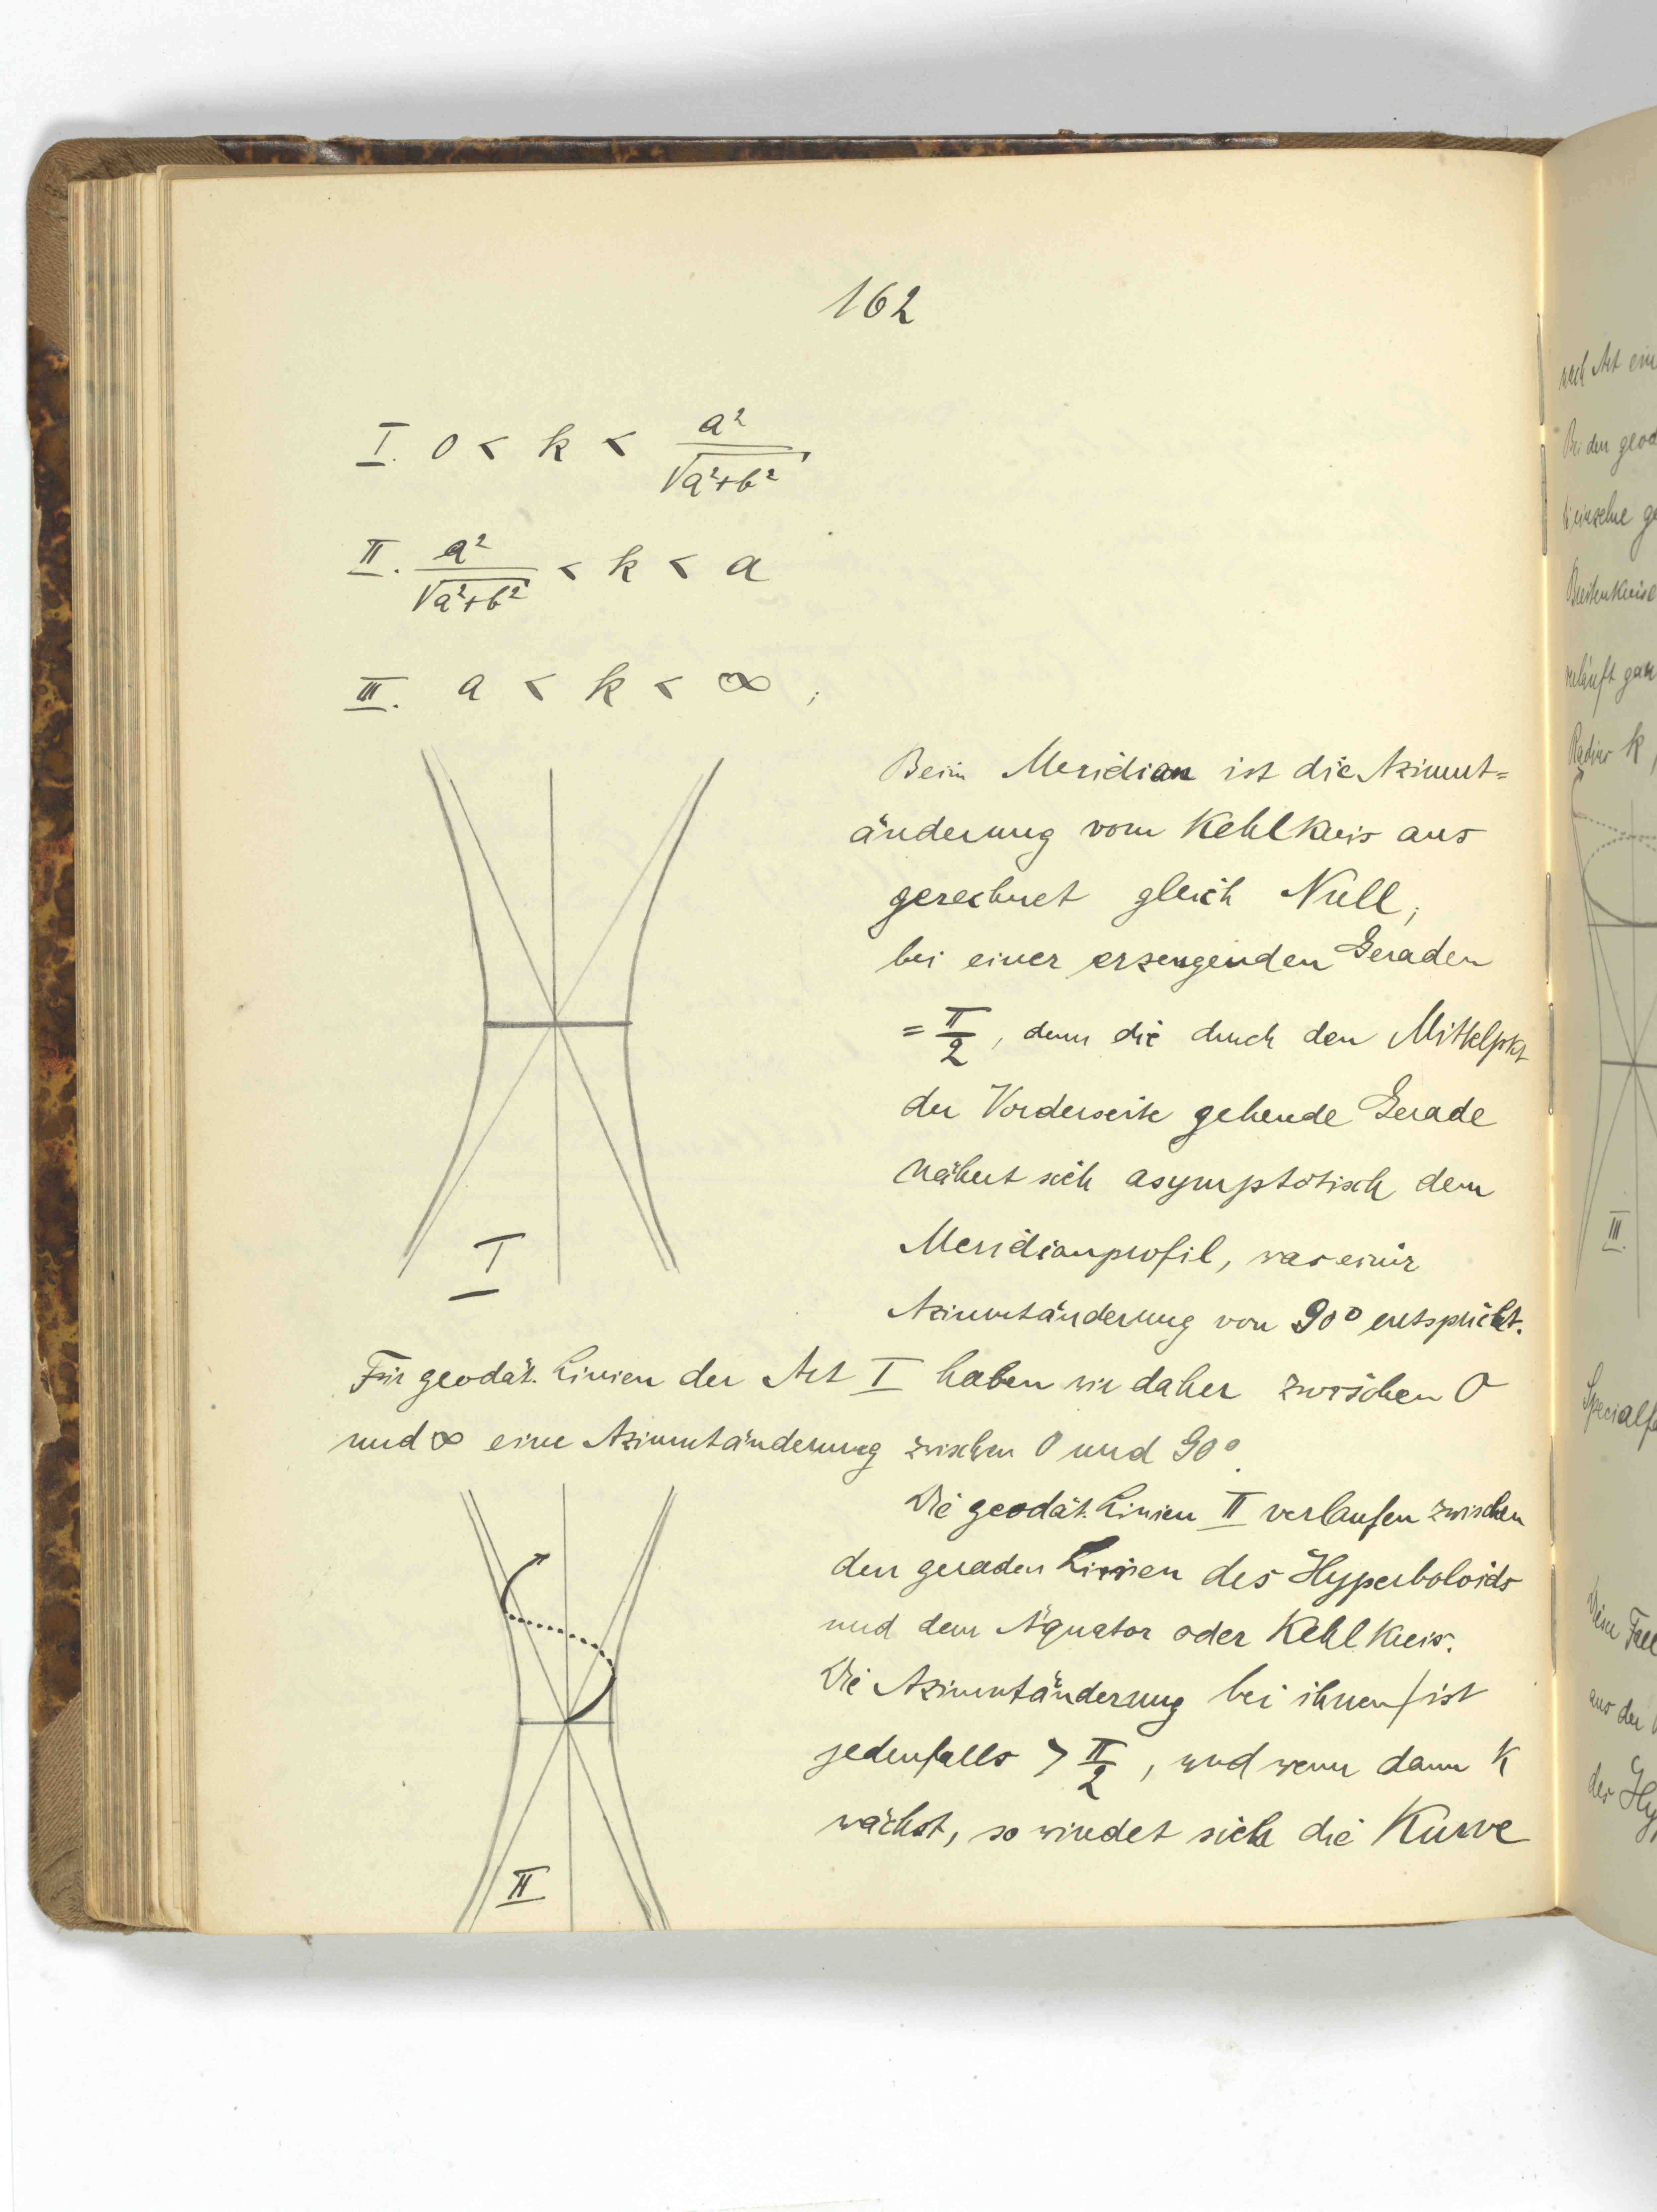 162
I. 0 < k < a²/√(a²+b²),
II. a²/√(a²+b²) < k < a
III. a < k < ∞ ;
Beim Meridian ist die Azimut=
änderung vom Kehlkreis aus
gerechnet gleich Null,
bei einer erzeugenden Geraden
= π/2, denn die durch den Mittelpkt
der Vorderseite gehende Gerade
nähert sich asymptotisch dem
Meridianprofil, was einer
Azimutänderung von 90° entspricht.
I
Für geodät. Linien der Art I haben wir daher zwischen 0
und ∞ eine Azimutänderung zwischen 0 und 90°.
Die geodät. Linien II verlaufen zwischen
den geraden Linien des Hyperboloids
und dem Äquator oder Kehlkreis.
Die Azimutänderung bei ihnen ist
jedenfalls > π/2, und wenn dann k
wächst, so windet sich die Kurve
II
nach Art
Bei den
einzelne
Breitenkreise
verläuft
Radius k,
III.
aus der
der